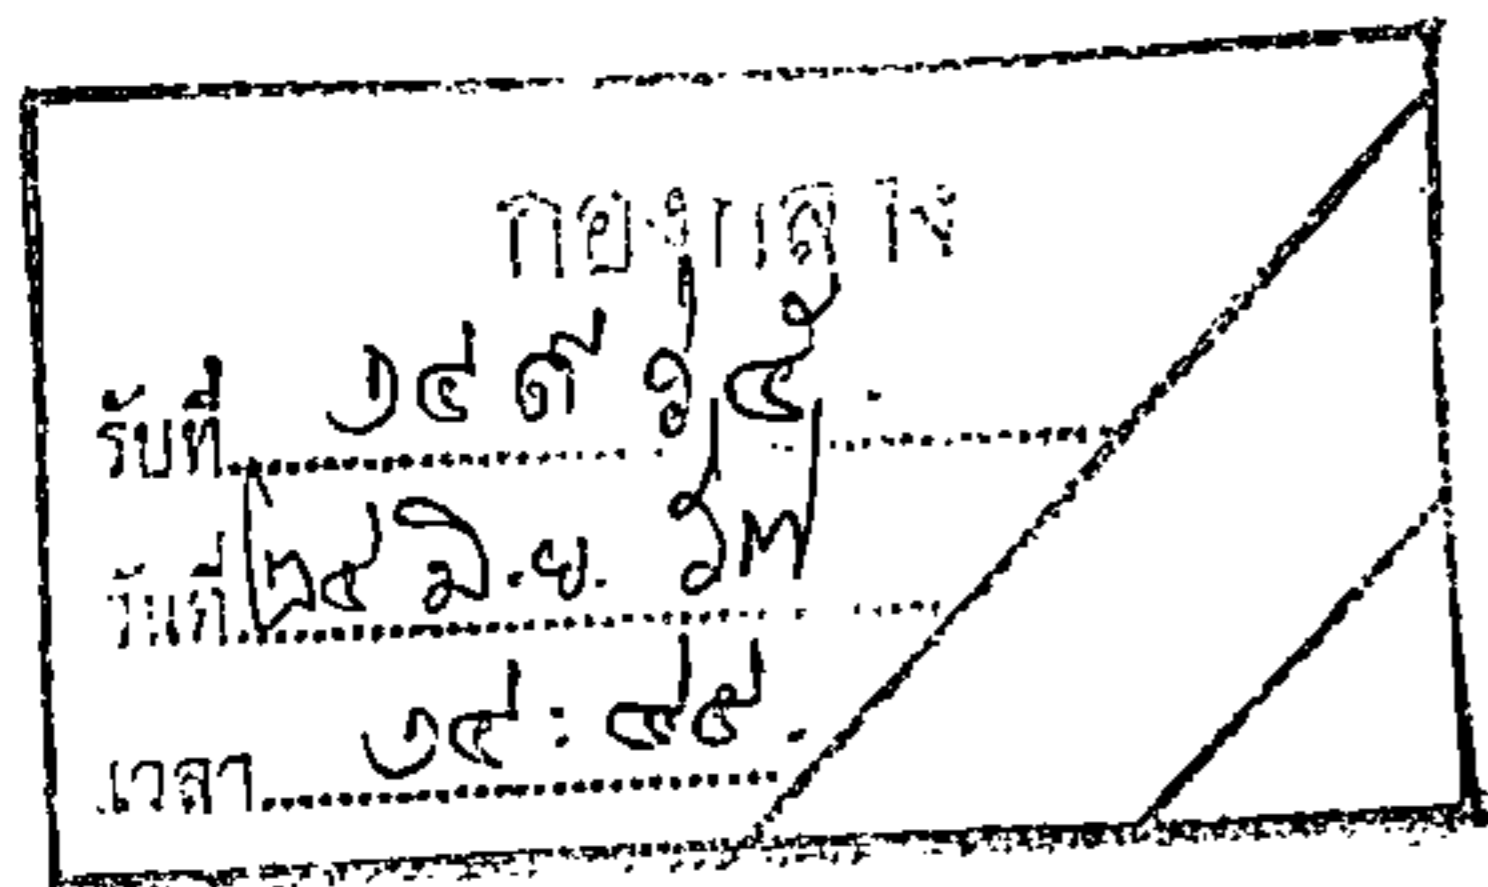 กองกลาง
รับที่ ๑๔๙๖๕
วันที่ ๒๔ มิ.ย. ๖๗
เวลา ๑๔:๔๕